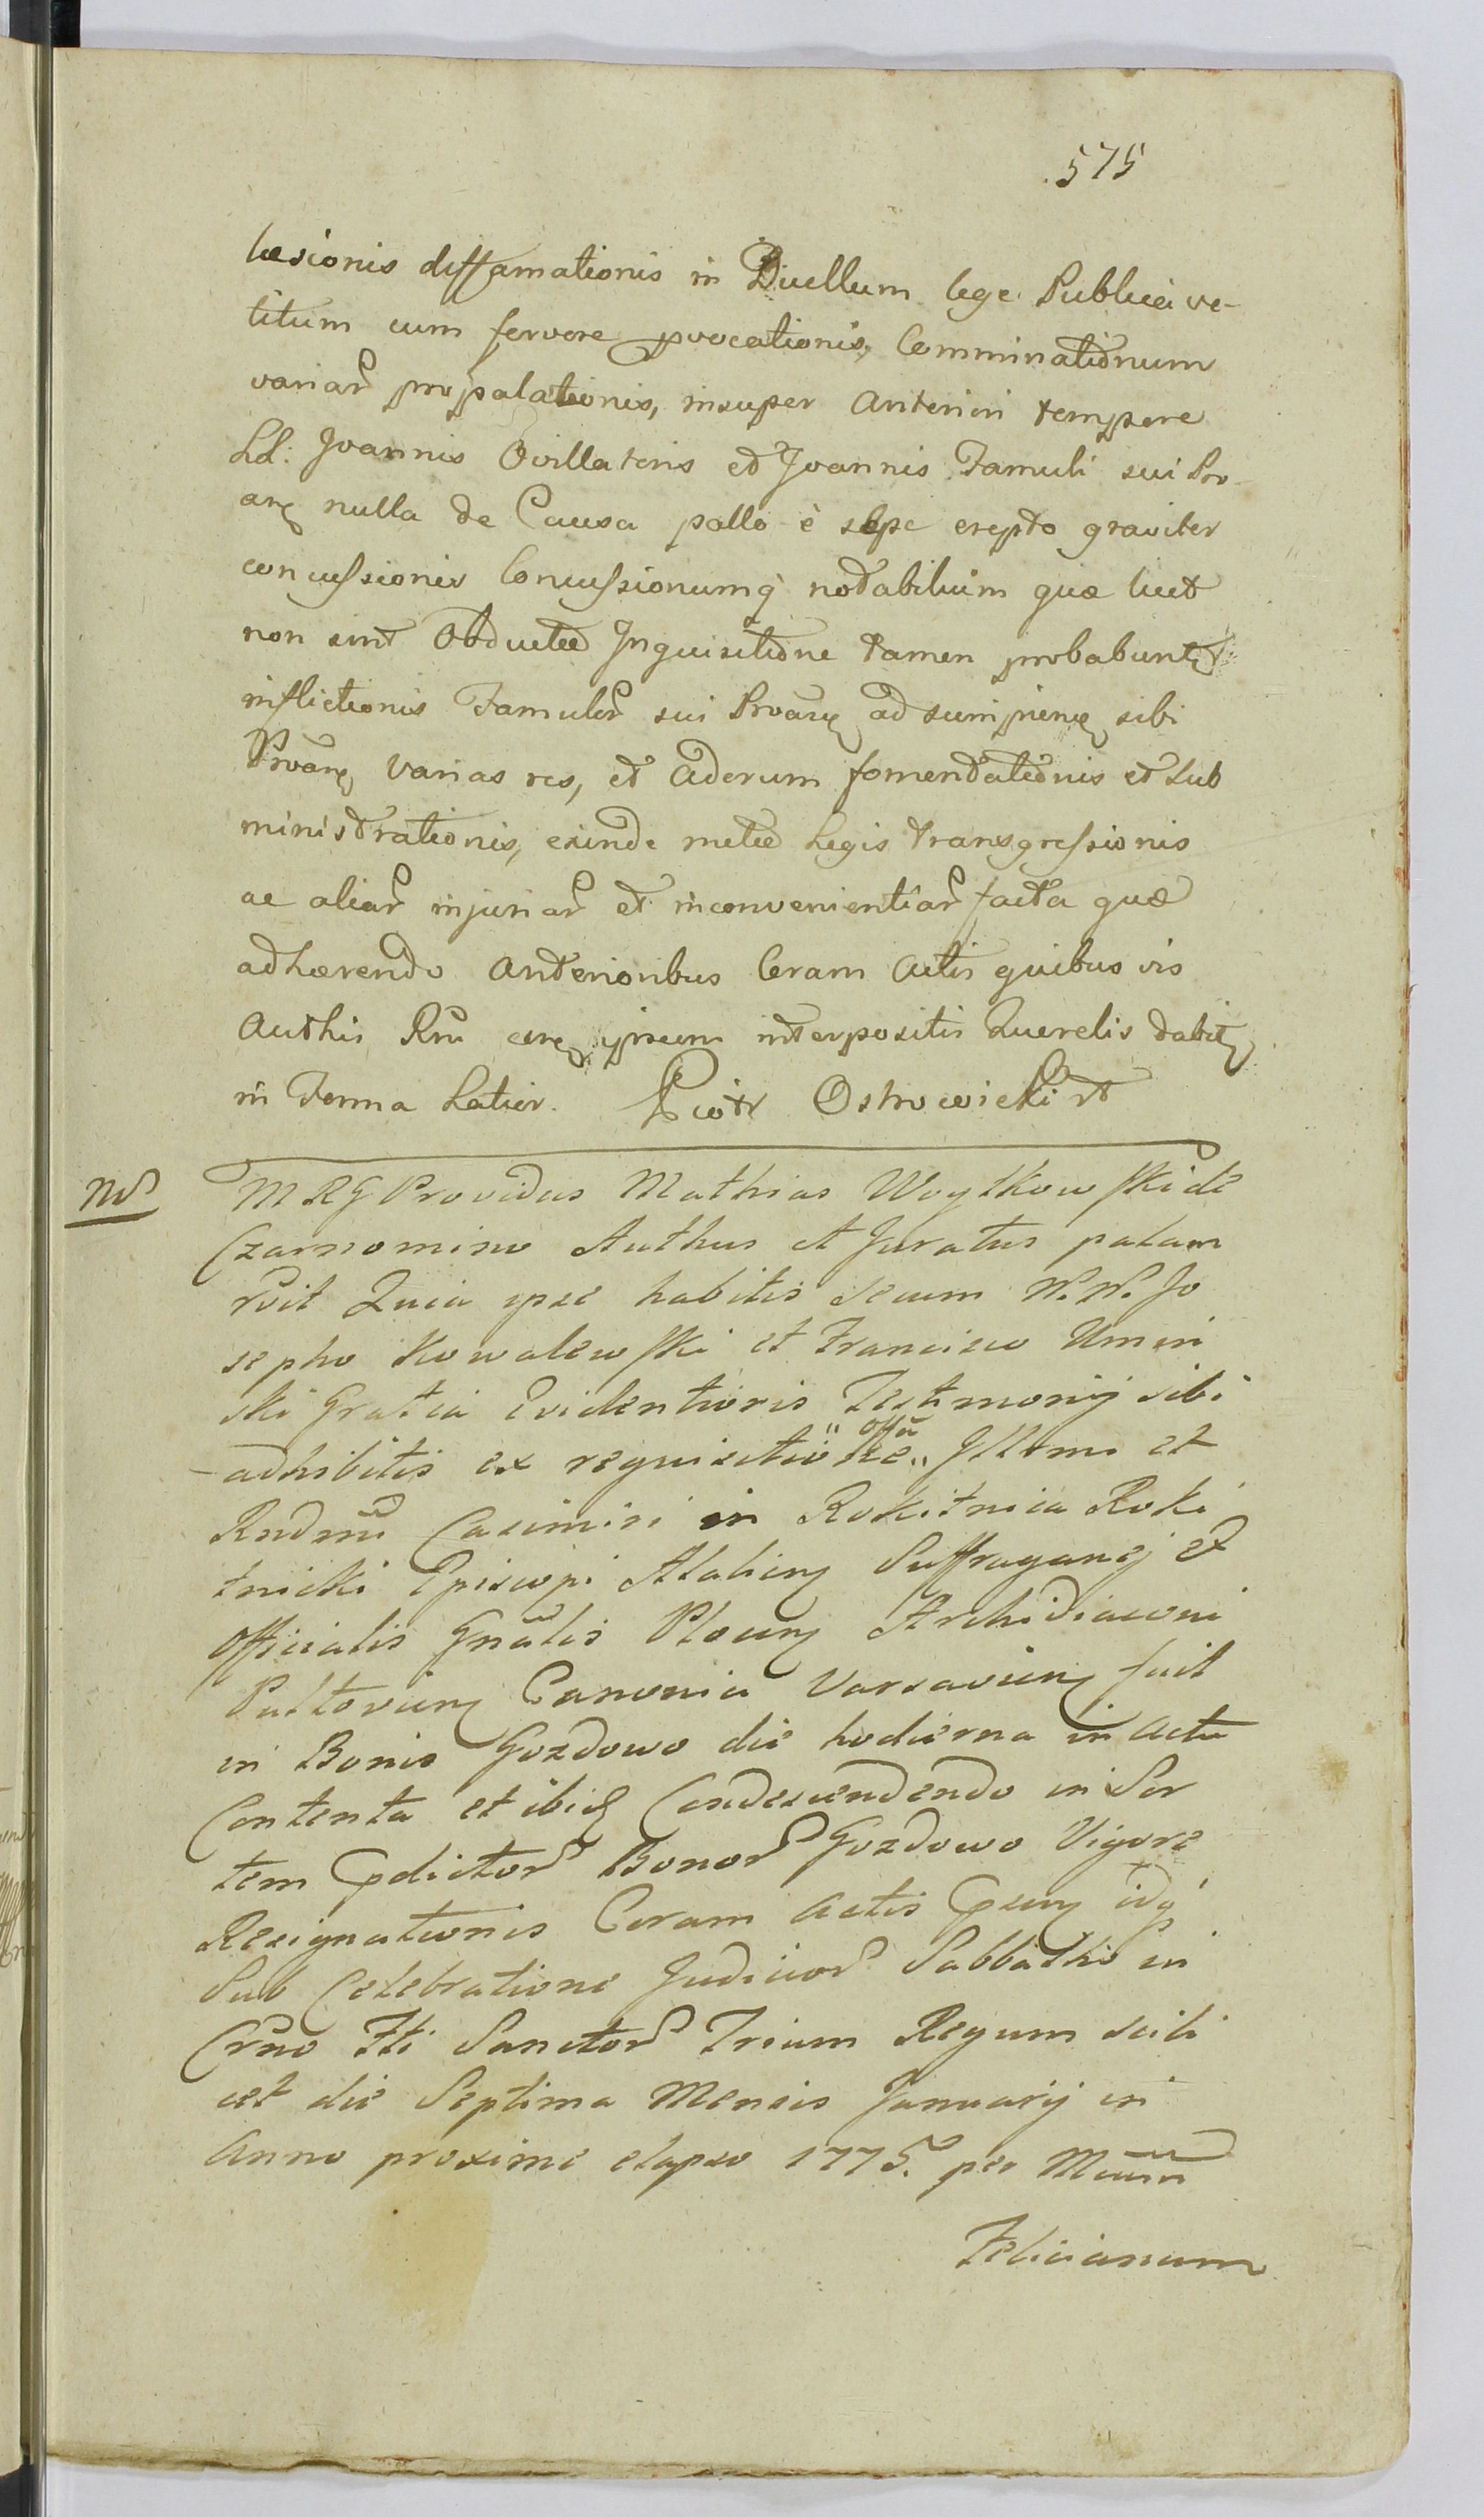 575
læsionis diffamationis in Duellum lege Publica ve-
titum cum fervore pvocationis, Comminationum
variar propalationis, insuper Anteriori tempore
LL: Joannis Ovillatoris et Joannis Famuli sui Pro-
arũ nulla de Causa pallo è sepe erepto graviter
concussionis Concussionumq notabilium quæ licet
non sint Obductæ Inquisitione tamen probabunt
inflictionis Famulor sui sibi
varias res, et Aderum fomentationis et Sub
ministrationis, exinde metæ Legis transgressionis
ac aliar injuriar et inconvenientiar facta quæ
adhærendo Anterioribus Coram Actis quibus vis
Authis interpositis Querelis
in Forma Latior. Piotr Ostrowicki
Nd
M R G Providus Mathias Woytkowski de
Czarnomino Authus et Juratus palam
rvit Quia ipse habitis secum N. N. Jo
sepho Kowalewski et Francisco Umin
ski Gratia Evidentioris Testimonij sibi
offa
adhibitis ex requisitione Illmi et
Rndmi Casimiri in Rokitnica Roki
tnicki Episcopi Suffraganej et
Officialis Gnalis Plocen Archidiaconi
Pultovien Canonici Varsavien fuit
in Bonis Gozdowo die hodierna in Actu
Contenta et ibid Condescendendo in Sor
tem pdictor Bonor Gozdowo Vigore
Resignationis Coram Actis idq
Sub Celebratione Judicior Sabbatho in
Crno Fti Sanctor Trium Regum scili
cet die Septima Mensis Januarij in
Anno proxime elapso 1775. per
Felicianum